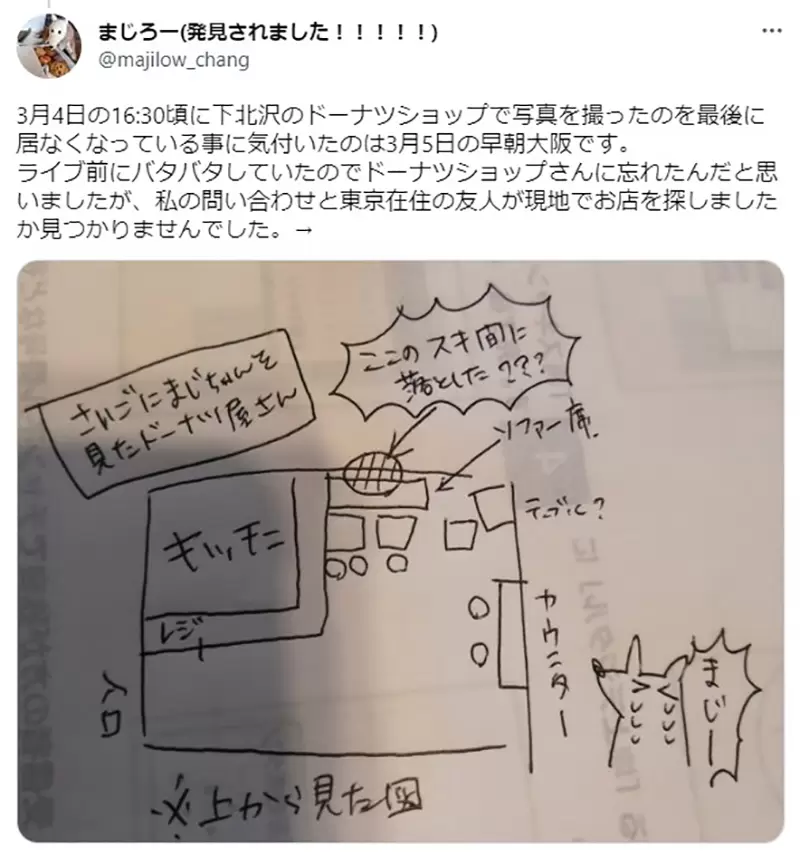 まじろー(発見されました！！！！！)
@majilow_chang
3月4日の16:30頃に下北沢のドーナツショップで写真を撮ったのを最後に
居なくなっている事に気付いたのは3月5日の早朝大阪です。
ライブ前にバタバタしていたのでドーナツショップさんに忘れたんだと思
いましたが、私の問い合わせと東京在住の友人が現地でお店を探しました
か見つかりませんでした。→
ここのスキ間に
落とした？？？
さいごにまじちゃんを
見たドーナツ屋さん
ソファー席
キッチン
テーブル？
レジ
カウンター
入口
まじー
※上から見た図